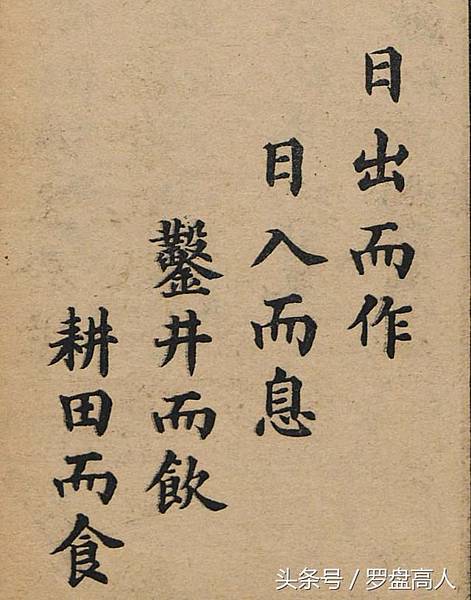 日出而作
日入而息
鑿井而飲
耕田而食
头条号 / 罗盘高人